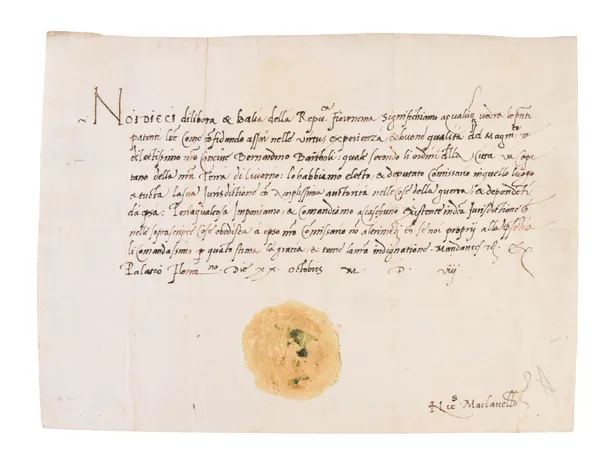 NOI DIECI di libertà & balia della Repu.ca fiorentina Significhiamo a qualūq vedrà le pñti
patenti lre Come cōfidando assai nelle virtù, experienza, & buone qualità dlla Mag.co
dilectissimo nro Concive Bernardino Bartholi: quale secondo li ordini dlla Città va Capi
tano della nra Terra di Livorno: lo habbiamo electo, & deputato Comissario in quello luogo
& tucta la sua Jurisdictione cō Amplissima auctorità nelle cose della guerra, & dependēti
da epsa: Per la qual cosa Imponiamo, & Comandiamo a ciaschuno existente in dca Jurisdictione ch
nelle soprascripte Cose obedisca a epso nro Comissario nō altrimēti ch se noi proprij alla pñtia
li comandassimo p quāto stima la gratia, & teme la nra indignatione. Mandantes &c. Ex
Palatio Florentino. Die xx Octobris M. D. viij
Nic.s Maclavellus